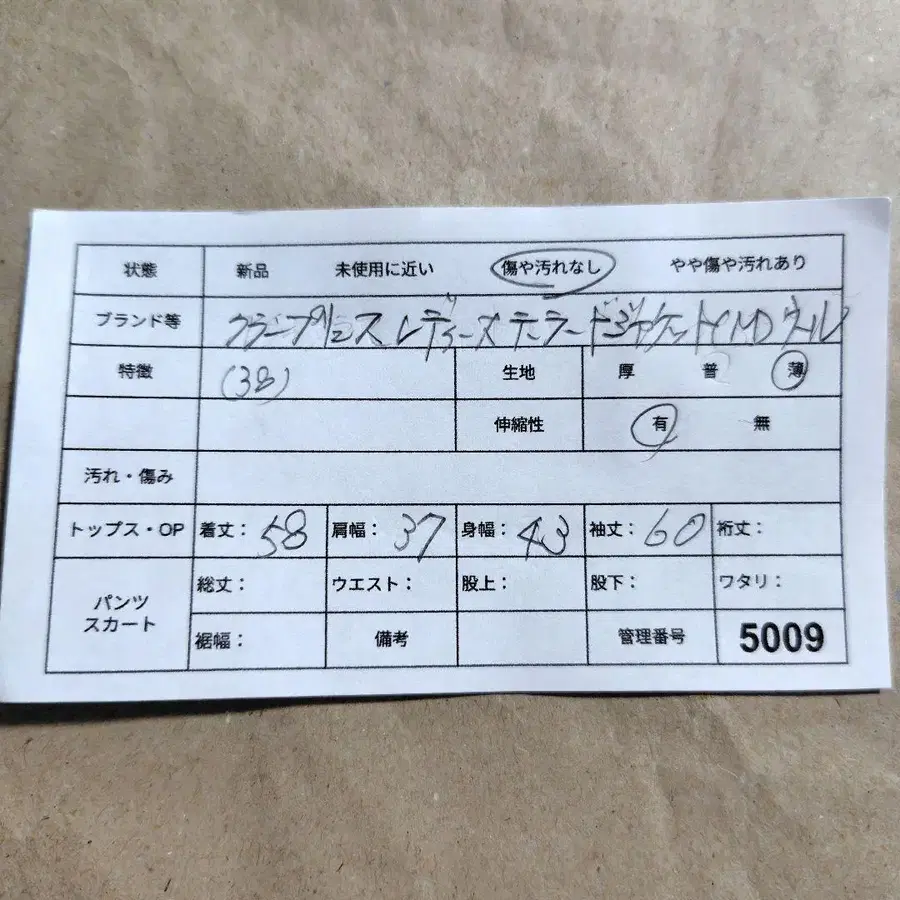 状態 新品 未使用に近い 傷や汚れなし やや傷や汚れあり
ブランド等 レディース テーラードジャケット M ウール
特徴 (38) 生地 厚 普 薄
伸縮性 有 無
汚れ・傷み
トップス・OP 着丈: 58 肩幅: 37 身幅: 43 袖丈: 60 裄丈:
パンツ スカート 総丈: ウエスト: 股上: 股下: ワタリ:
裾幅: 備考 管理番号 5009